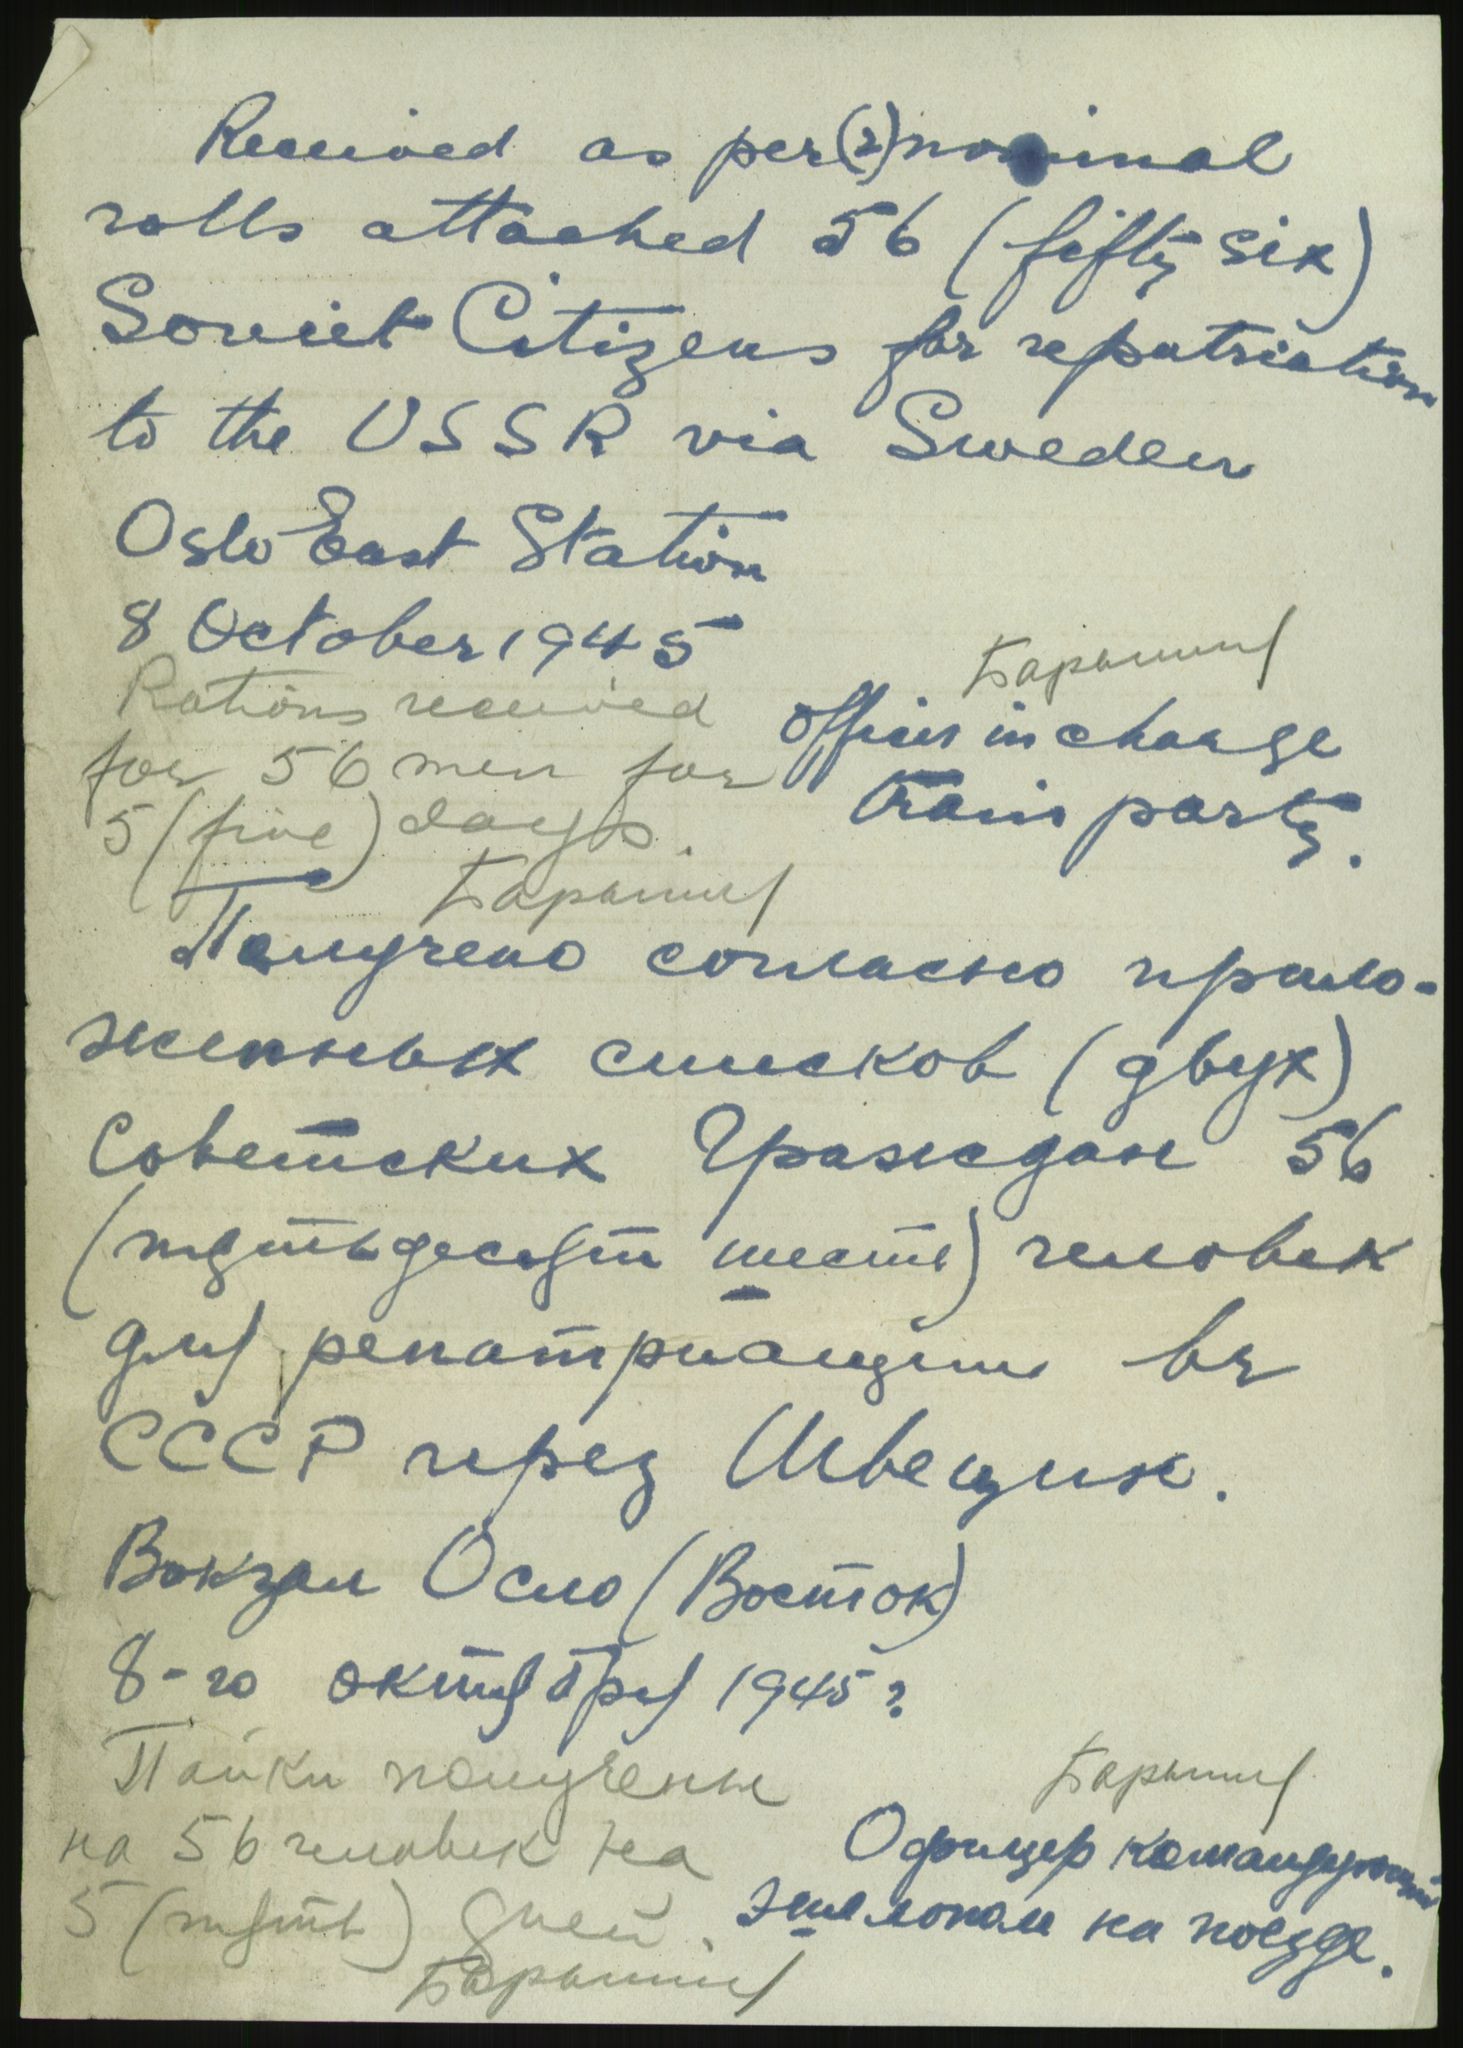 Received as per (2) nominal
rolls attached 56 (fifty six)
Soviet Citizens for repatriation
to the USSR via Sweden
Oslo East Station
8 October 1945
Rations received
for 56 men for
5 (five) days.
Officer in charge
Train party.
Получено согласно прило-
женных списков (двух)
Советских Граждан 56
(пятьдесят шесть) человек
для репатриации въ
СССР через Швецию.
Вокзал Осло (Восток)
8-го октября 1945 г
Пайки получены
на 56 человек на
5 (пять) дней.
Офицер командующий
эшелоном на поезде.